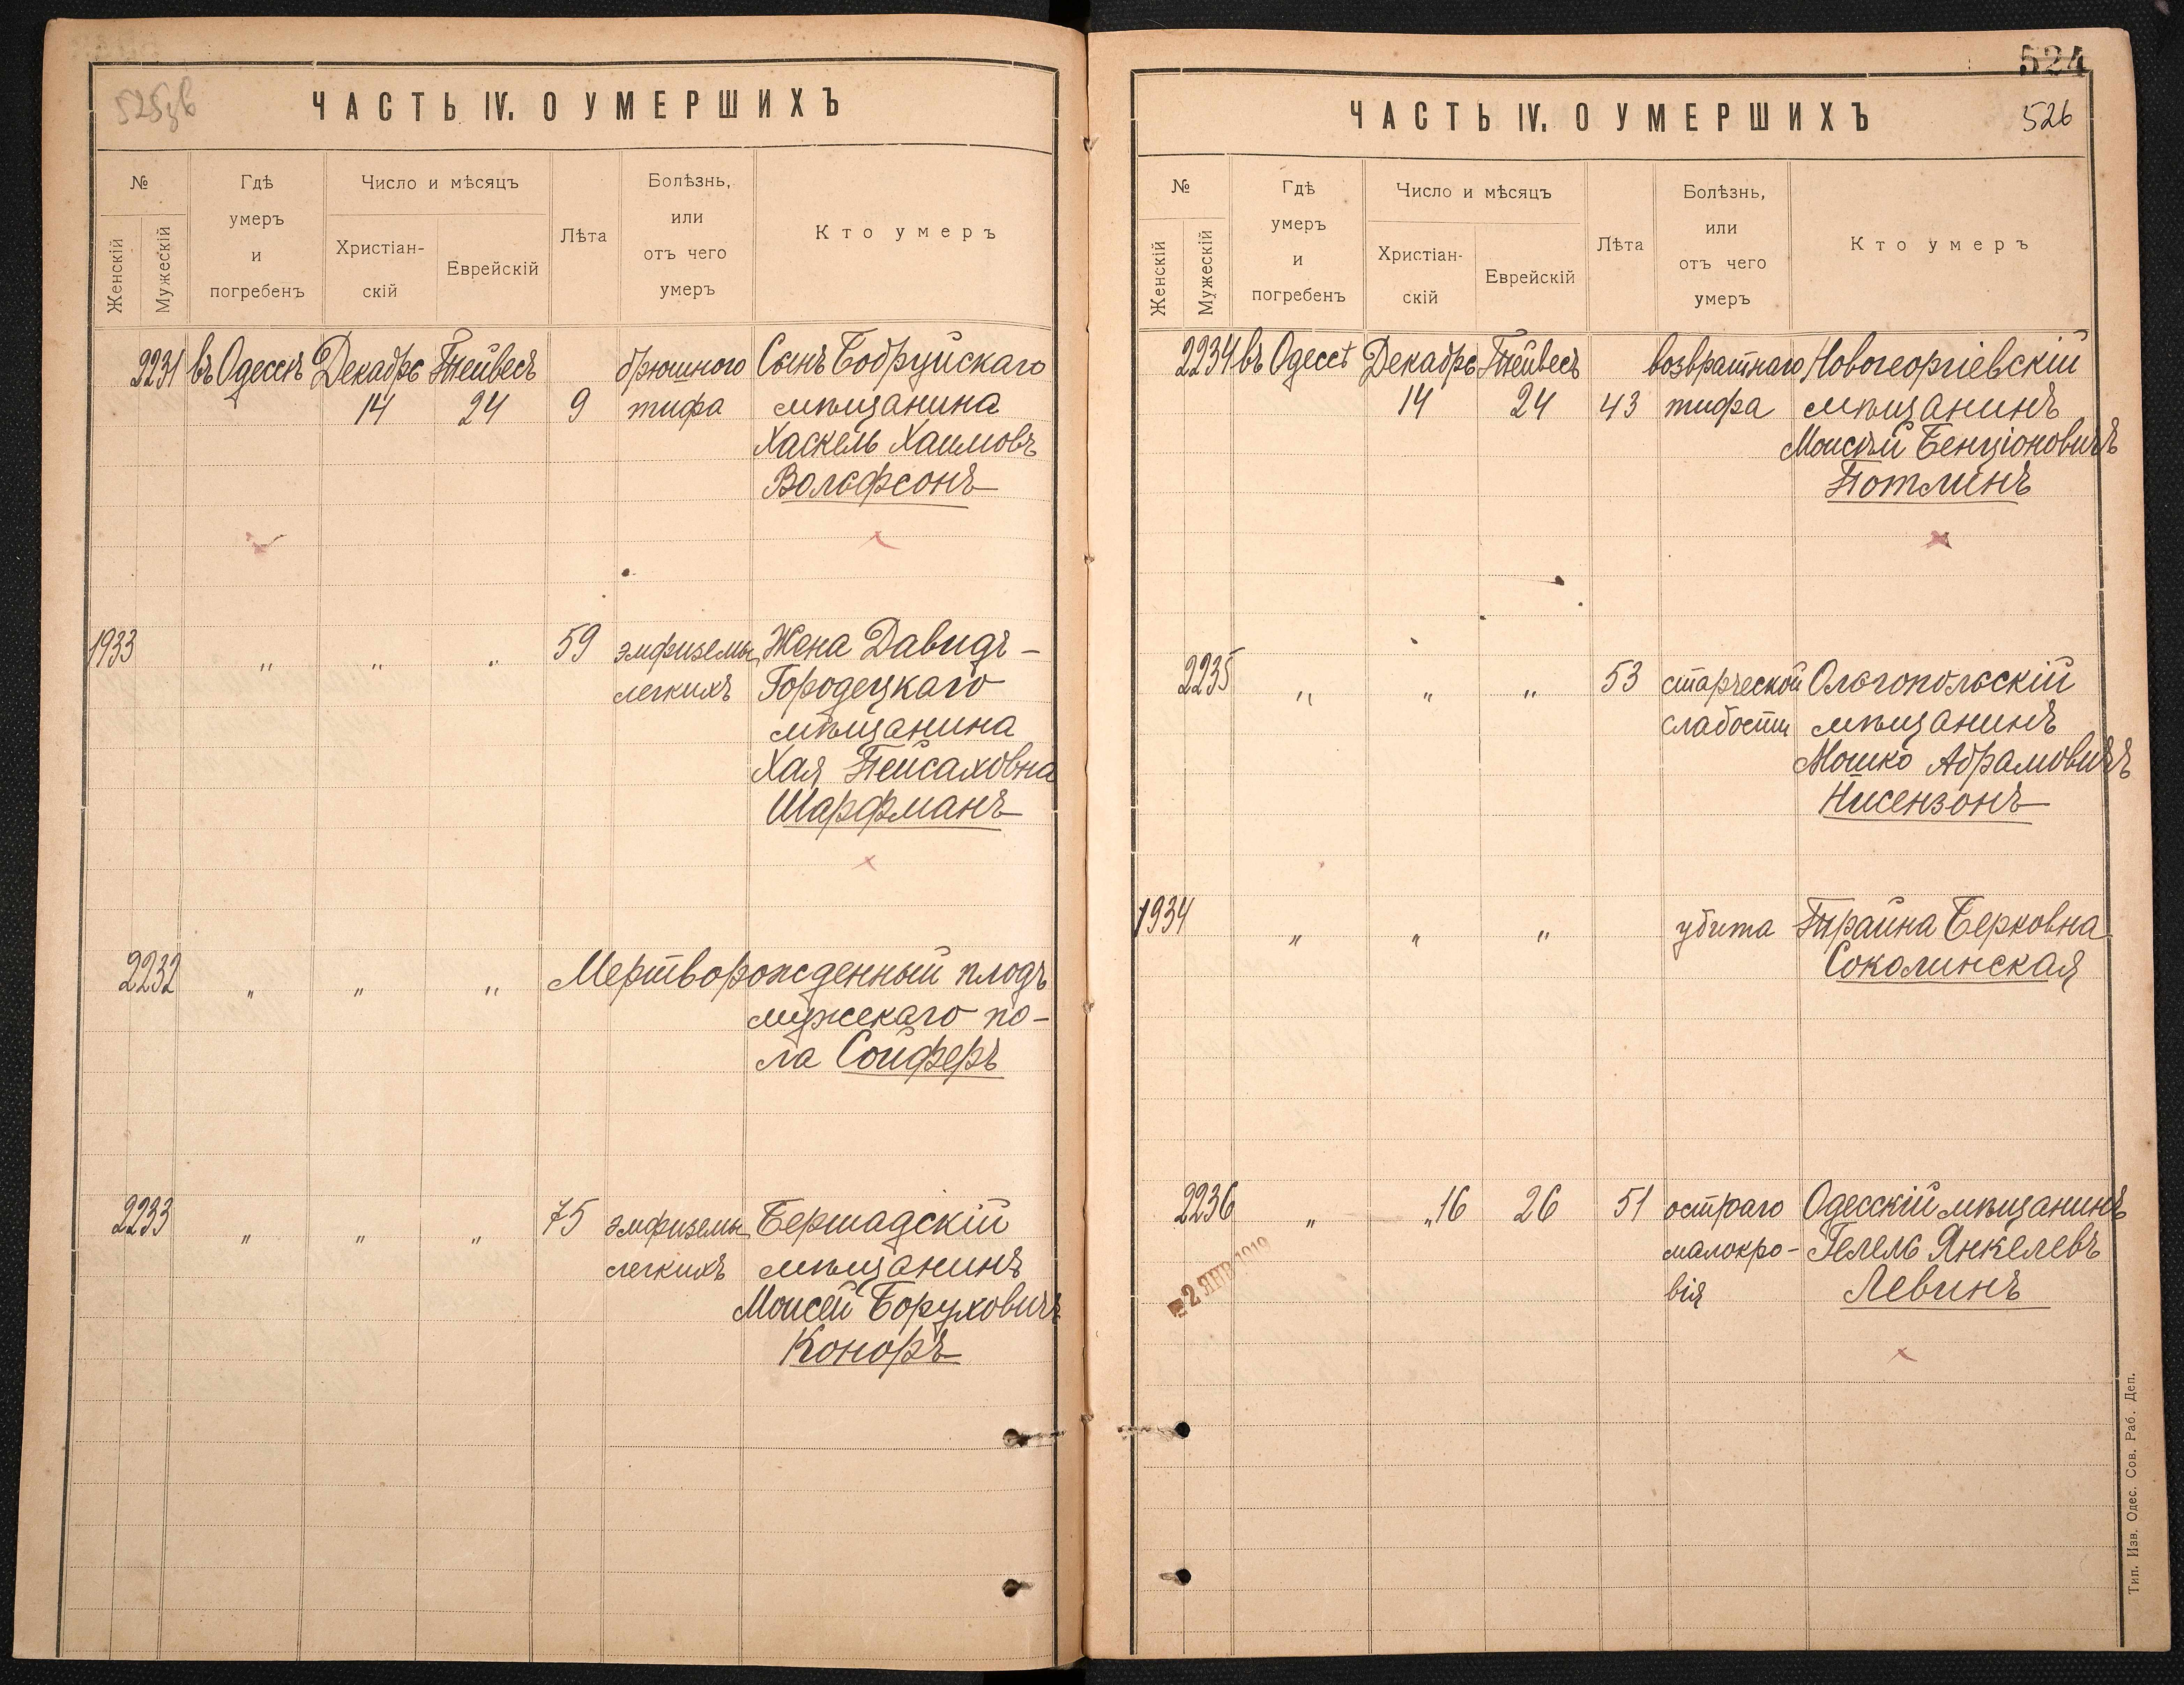 525зв
ЧАСТЬ IV. О УМЕРШИХЪ
№
Женскій
Мужескій
Гдѣ
умеръ
и
погребенъ
Число и мѣсяцъ
Христіан-
скій
Еврейскій
Лѣта
Болѣзнь,
или
отъ чего
умеръ
Кто умеръ
2231 въ Одессѣ Декабрь Тейвесъ брюшного Сынъ Бобруйскаго
14 24 9 тифа мѣщанина
Хаскель Хаимовъ
Вольфсонъ
1933 " " " 59 эмфиземы Жена Давидъ-
легкихъ Городецкаго
мѣщанина
Хая Пейсаховна
Шарфманъ
2232 " " " Мертворожденный плодъ
мужскаго по-
ла Сойферъ
2233 " " " 75 эмфиземы Бершадскій
легкихъ мѣщанинъ
Моисей Боруховичъ
Коноръ
524
526
ЧАСТЬ IV. О УМЕРШИХЪ
№
Женскій
Мужескій
Гдѣ
умеръ
и
погребенъ
Число и мѣсяцъ
Христіан-
скій
Еврейскій
Лѣта
Болѣзнь,
или
отъ чего
умеръ
Кто умеръ
2234 въ Одессѣ Декабрь Тейвесъ возвратнаго Новогеоргіевскій
14 24 43 тифа мѣщанинъ
Моисѣй Бенціоновичъ
Потлинъ
2235 " " " 53 старческой Ольгопольскій
слабости мѣщанинъ
Мошко Абрамовичъ
Нисензонъ
1934 " " " убита Брайна Берковна
Соколинская
2236 " " 16 26 51 остраго Одесскій мѣщанинъ
малокро- Гелель Янкелевъ
вія Левинъ
2 ЯНВ 1919
Тип. Изв. Одес. Сов. Раб. Деп.